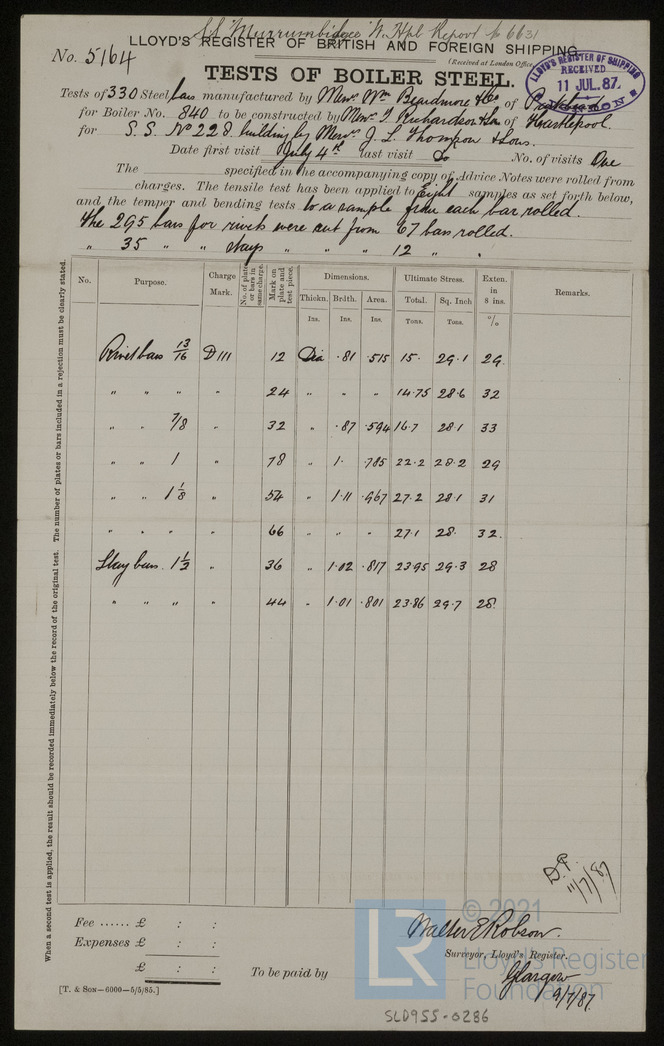 SS Murrumbidgee W. Hpl Report No 6631
LLOYD'S REGISTER OF BRITISH AND FOREIGN SHIPPING.
No. 5164
(Received at London Office
LLOYD'S REGISTER OF SHIPPING
RECEIVED
11 JUL. 87.
LONDON
TESTS OF BOILER STEEL.
Tests of 330 Steel bars manufactured by Messrs Wm Beardmore & Co of Parkhead
for Boiler No. 840 to be constructed by Messrs T. Richardson & Son of Hartlepool.
for S.S. No 228 building by Messrs J. L. Thompson & Sons.
Date first visit July 4th last visit Do No. of visits One
The specified in the accompanying copy of Advice Notes were rolled from
charges. The tensile test has been applied to Eight samples as set forth below,
and the temper and bending tests to a sample from each bar rolled.
The 295 bars for rivets were cut from 67 bars rolled.
" 35 " " Stays " " " 12 " "
No. Purpose. Charge Mark. No. of plates or bars in same charge. Mark on plate and test piece. Dimensions. Ultimate Stress. Exten. in 8 ins. Remarks.
Thickn. Brdth. Area. Total. Sq. Inch
Ins. Ins. Ins. Tons. Tons. %
Rivet bars 13/16 D 111 12 Dia .81 .515 15. 29.1 29
" " " " 24 " " " 14.75 28.6 32
" " 7/8 " 32 " .87 .594 16.7 28.1 33
" " 1 " 78 " 1. .785 22.2 28.2 29
" " 1 1/8 " 54 " 1.11 .967 27.2 28.1 31
" " " " 66 " " " 27.1 28. 32.
Stay bars. 1 1/2 " 36 " 1.02 .817 23.95 29.3 28
" " " " 44 " 1.01 .801 23.86 29.7 28
When a second test is applied, the result should be recorded immediately below the record of the original test. The number of plates or bars included in a rejection must be clearly stated.
D.P.
11/7/87
Fee ...... £ : :
Expenses £ : :
£ : :
To be paid by
Walter E Robson.
Surveyor, Lloyd's Register.
Glasgow
9/7/87.
[T. & SON—6000—5/5/85.]
© 2021
LR
Lloyd's Register
Foundation
SLD955-0286